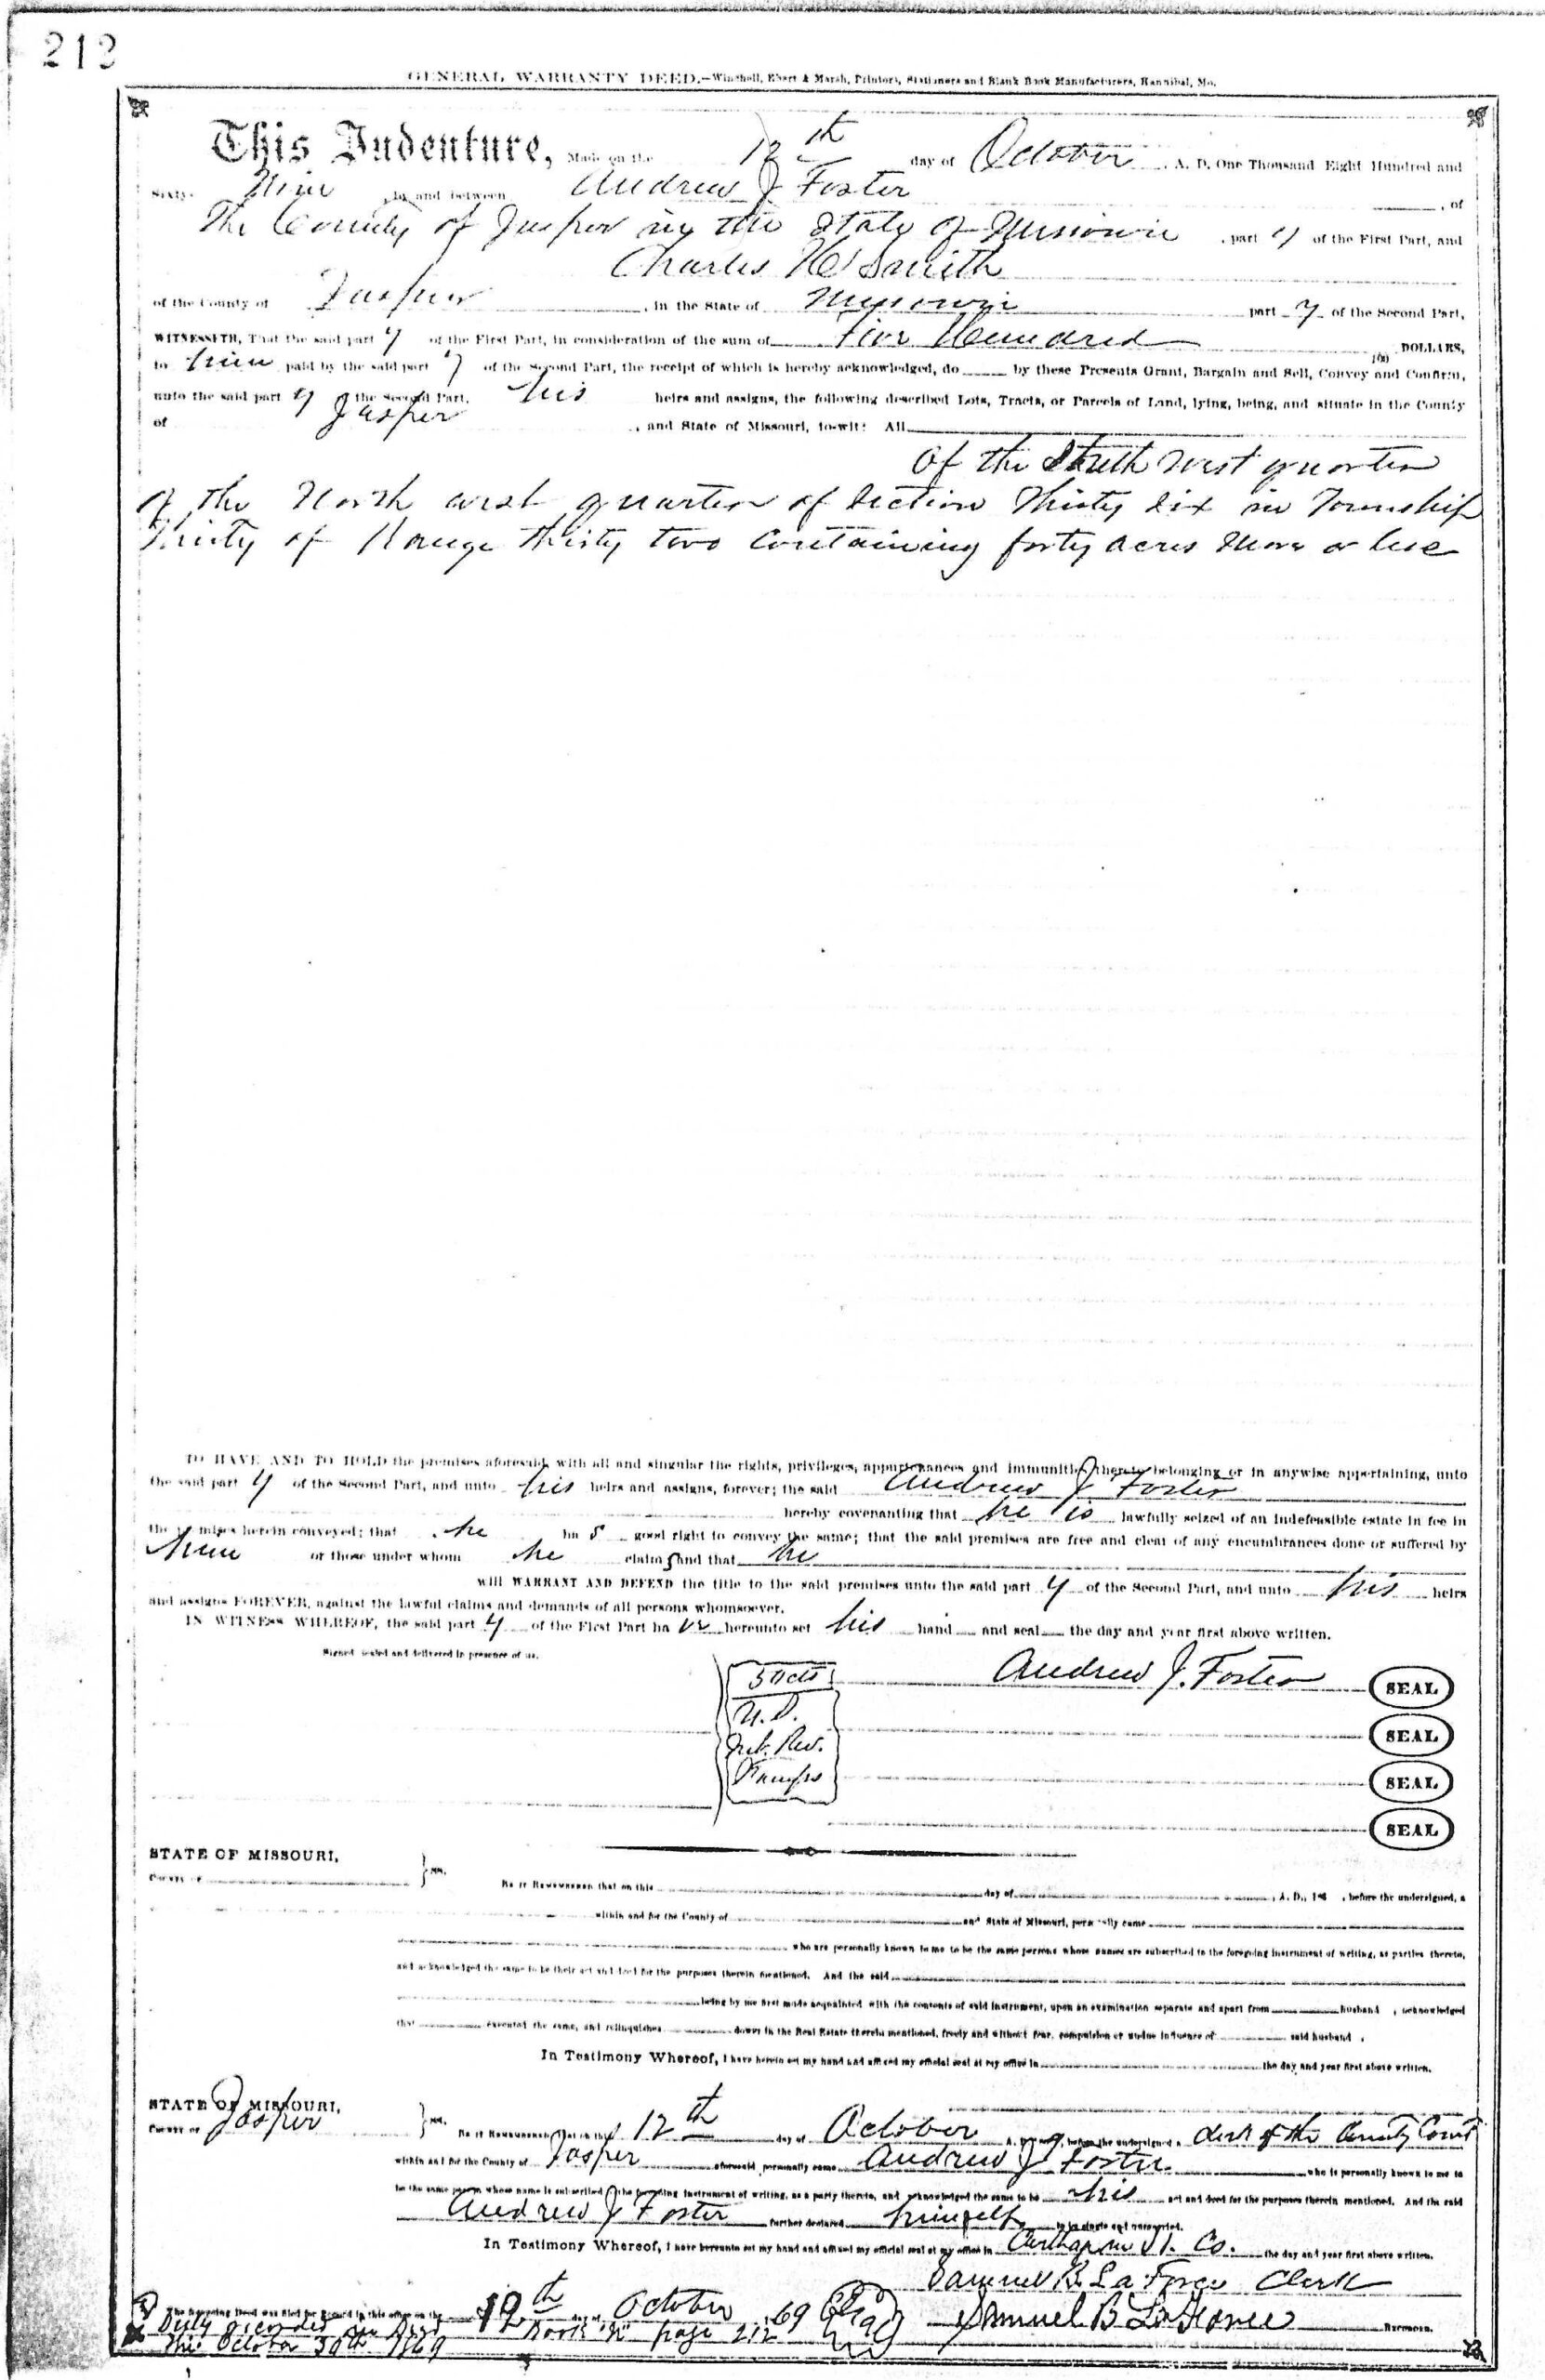 212
GENERAL WARRANTY DEED.—Winchell, Ebert & Marsh, Printers, Stationers and Blank Book Manufacturers, Hannibal, Mo.
This Indenture, Made on the 12th day of October, A. D. One Thousand Eight Hundred and
Sixty- Nine, by and between Andrew J Foster, of
The County of Jasper in the State of Missouri, part y of the First Part, and
Charles H Smith
of the County of Jasper, in the State of Missouri part y of the Second Part,
WITNESSETH, That the said part y of the First Part, in consideration of the sum of Five Hundred DOLLARS,
to him paid by the said part y of the Second Part, the receipt of which is hereby acknowledged, do by these Presents Grant, Bargain and Sell, Convey and Confirm,
unto the said part y of the Second Part, his heirs and assigns, the following described Lots, Tracts, or Parcels of Land, lying, being, and situate in the County
of Jasper, and State of Missouri, to-wit: All
of the South west quarter
of the North west quarter of Section Thirty six in Township
Thirty of Range Thirty two containing forty acres more or less
TO HAVE AND TO HOLD the premises aforesaid, with all and singular the rights, privileges, appurtenances and immunities thereto belonging or in anywise appertaining, unto
the said part y of the Second Part, and unto his heirs and assigns, forever; the said Andrew J Foster
hereby covenanting that he is lawfully seized of an indefeasible estate in fee in
the premises herein conveyed; that he ha s good right to convey the same; that the said premises are free and clear of any encumbrances done or suffered by
him or those under whom he claims and that he
will WARRANT AND DEFEND the title to the said premises unto the said part y of the Second Part, and unto his heirs
and assigns FOREVER, against the lawful claims and demands of all persons whomsoever.
IN WITNESS WHEREOF, the said part y of the First Part ha ve hereunto set his hand and seal the day and year first above written.
Signed sealed and delivered in presence of us.
50cts Andrew J. Foster SEAL
U.S. SEAL
Int. Rev. SEAL
Stamps SEAL
STATE OF MISSOURI,
County of ss. Be it Remembered that on this day of, A. D., 186 , before the undersigned, a
within and for the County of and State of Missouri, personally came
who are personally known to me to be the same persons whose names are subscribed to the foregoing instrument of writing, as parties thereto,
and acknowledged the same to be their act and deed for the purposes therein mentioned. And the said
being by me first made acquainted with the contents of said instrument, upon an examination separate and apart from husband , acknowledged
that executed the same, and relinquishes dower in the Real Estate therein mentioned, freely and without fear, compulsion or undue influence of said husband .
In Testimony Whereof, I have herein set my hand and affixed my official seal at my office in the day and year first above written.
STATE OF MISSOURI,
County of Jasper ss. Be it Remembered that on this 12th day of October A. D. 9, before the undersigned a clerk of the County Court
within and for the County of Jasper aforesaid personally came Andrew J Foster who is personally known to me to
be the same person whose name is subscribed to the foregoing instrument of writing, as a party thereto, and acknowledged the same to be his act and deed for the purposes therein mentioned. And the said
Andrew J Foster further declared himself to be single and unmarried.
In Testimony Whereof, I have hereunto set my hand and affixed my official seal at my office in Carthage the day and year first above written.
Samuel B La Force Clerk
The foregoing Deed was filed for Record in this office on the 12th day of October 69 Samuel B LaForce RECORDER.
Duly recorded Book page 212
This October 30th 1869